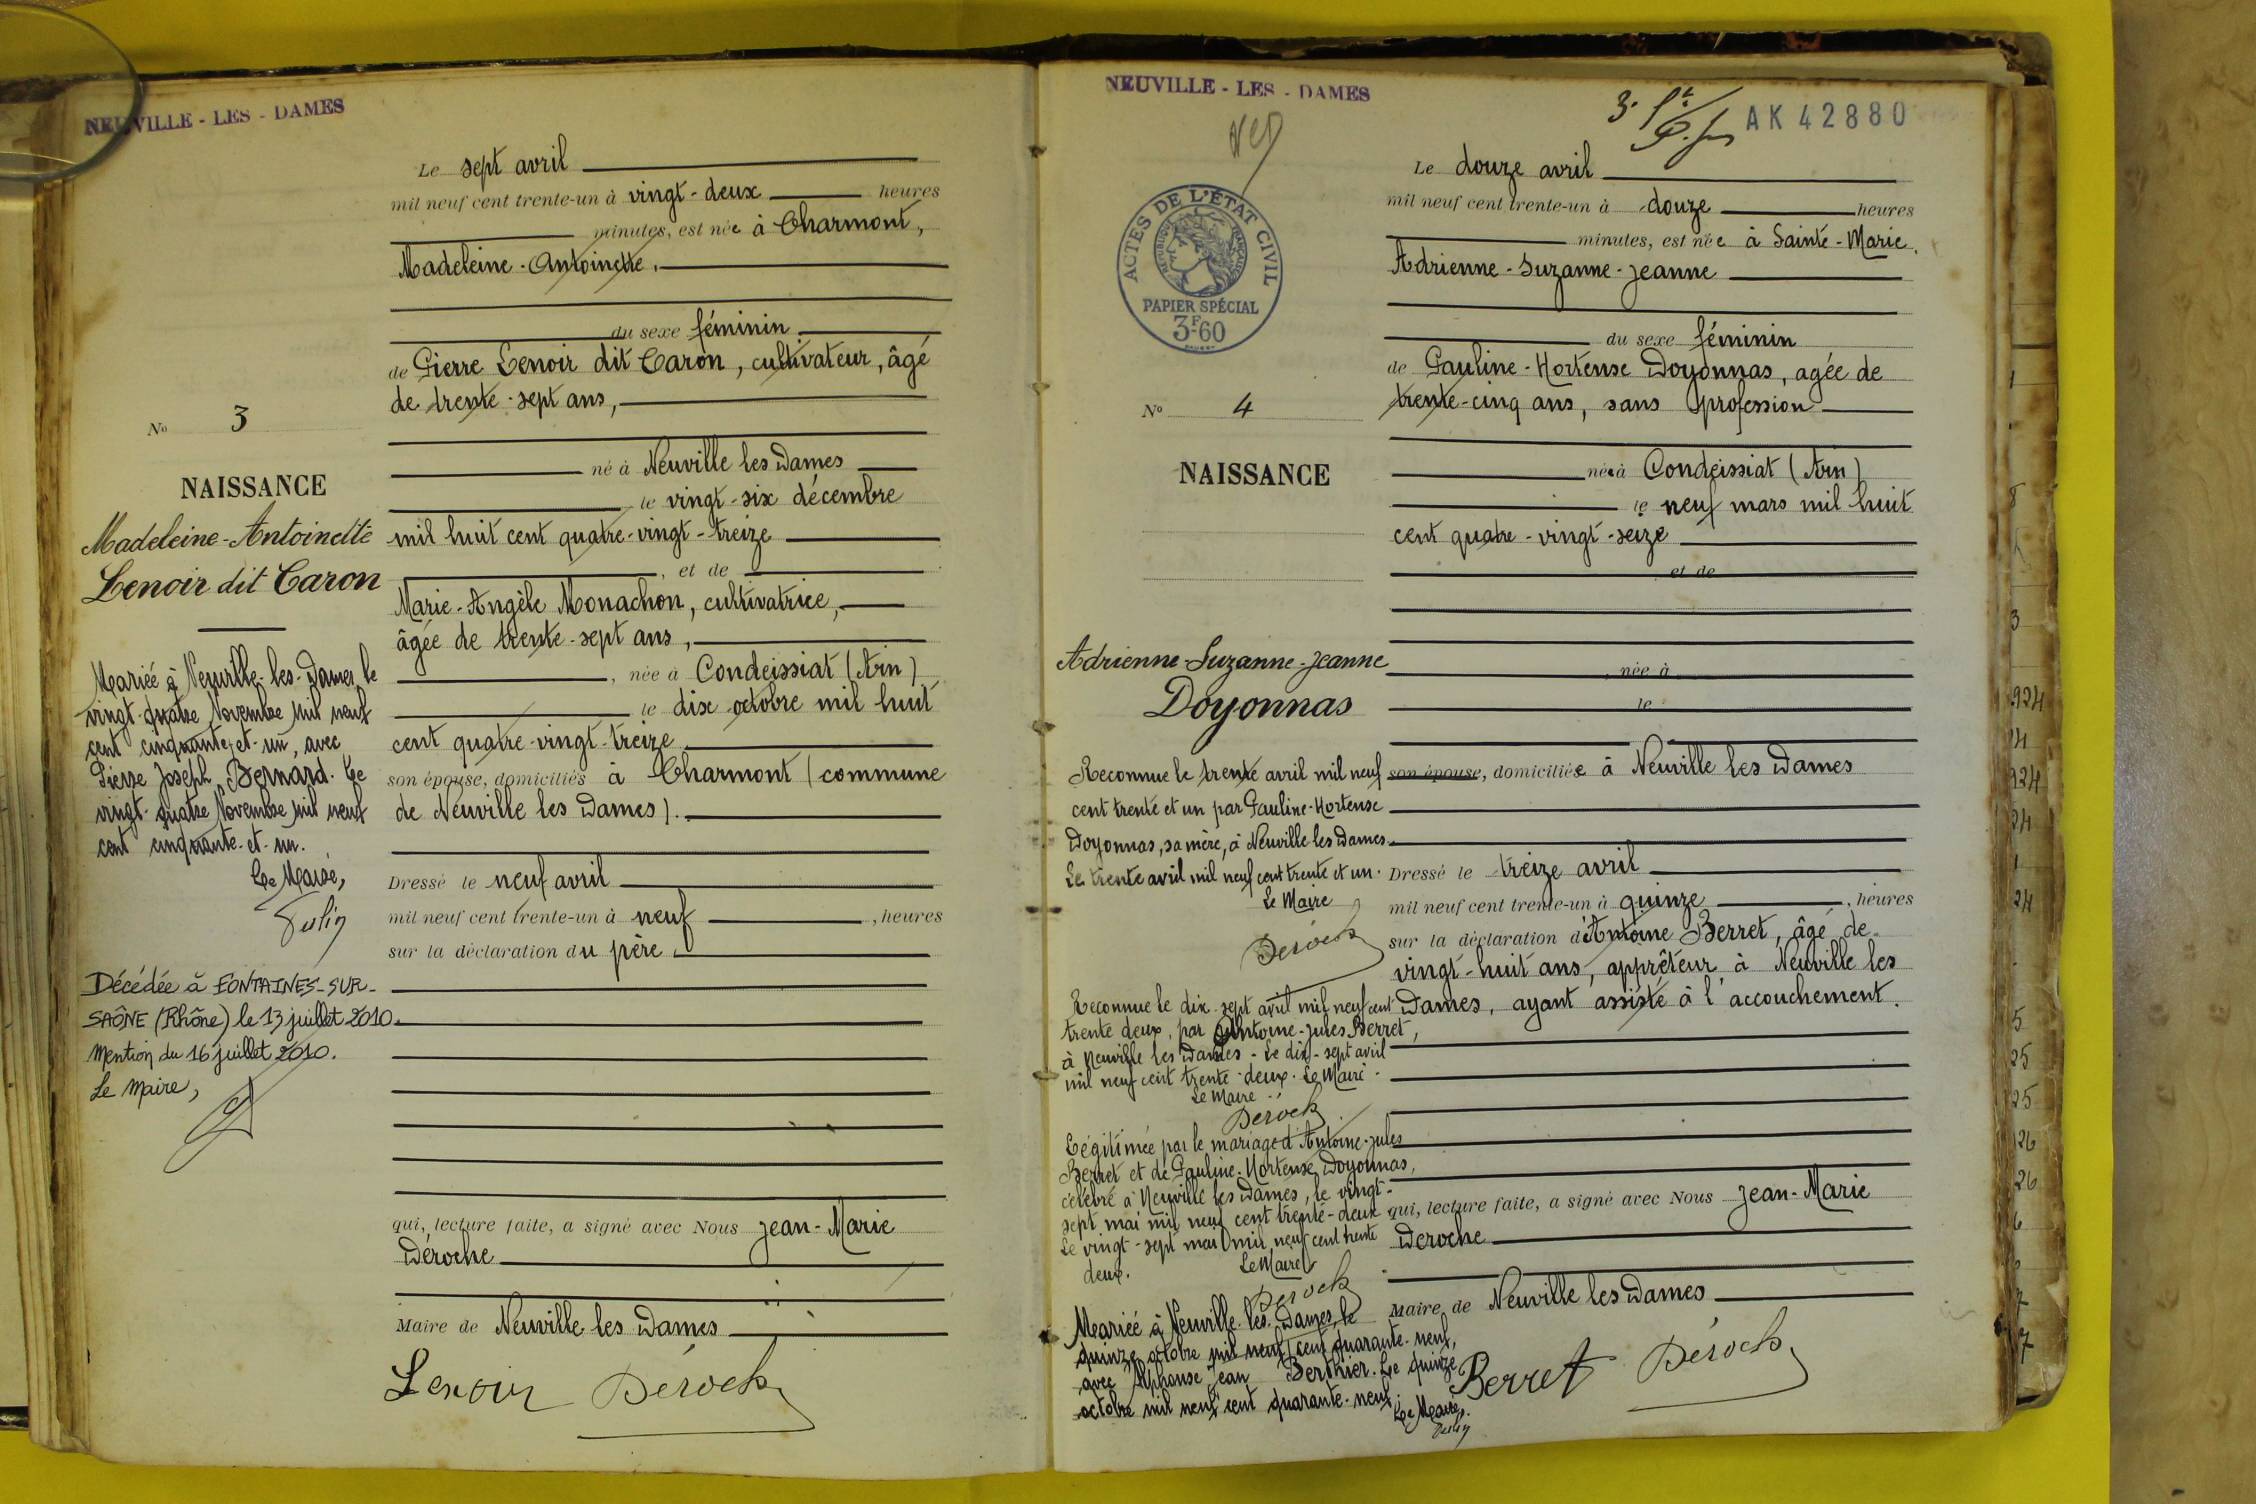 NEUVILLE - LES - DAMES
Le sept avril
mil neuf cent trente-un à vingt-deux heures
minutes, est née à Charmont,
Madeleine-Antoinette.
du sexe féminin
de Pierre Lenoir dit Caron, cultivateur, âgé
de trente-sept ans,
né à Neuville les Dames
le vingt-six décembre
mil huit cent quatre-vingt-treize
, et de
Marie-Angèle Monachon, cultivatrice,
âgée de trente-sept ans,
, née à Condeissiat (Ain)
le dix octobre mil huit
cent quatre-vingt-treize
son épouse, domiciliés à Charmont (commune
de Neuville les Dames).
Dressé le neuf avril
mil neuf cent trente-un à neuf , heures
sur la déclaration du père.
qui, lecture faite, a signé avec Nous Jean-Marie
Déroche
Maire de Neuville les Dames
Lenoir Déroche
No 3
NAISSANCE
Madeleine-Antoinette
Lenoir dit Caron
Mariée à Neuville-les-Dames le
vingt-quatre Novembre mil neuf
cent cinquante-et-un, avec
Pierre Joseph Bernard. Le
vingt-quatre Novembre mil neuf
cent cinquante-et-un.
Le Maire,
Décédée à FONTAINES-SUR-
SAÔNE (Rhône) le 13 juillet 2010.
Mention du 16 juillet 2010.
Le Maire,
NEUVILLE - LES - DAMES
AK 42880
ACTES DE L'ÉTAT CIVIL
RÉPUBLIQUE FRANÇAISE
PAPIER SPÉCIAL
3F60
Le douze avril
mil neuf cent trente-un à douze heures
minutes, est née à Sainte-Marie.
Adrienne-Suzanne-Jeanne
du sexe féminin
de Pauline-Hortense Doyonnas, agée de
trente-cinq ans, sans profession
née à Condeissiat (Ain)
le neuf mars mil huit
cent quatre-vingt-seize
et de
, née à
le
son épouse, domiciliée à Neuville les Dames
Dressé le treize avril
mil neuf cent trente-un à quinze , heures
sur la déclaration d'Antoine Berret, âgé de
vingt-huit ans, apprêteur à Neuville les
Dames, ayant assisté à l'accouchement.
qui, lecture faite, a signé avec Nous Jean-Marie
Deroche
Maire de Neuville les Dames
Berret Déroche
No 4
NAISSANCE
Adrienne-Suzanne-Jeanne
Doyonnas
Reconnue le trente avril mil neuf
cent trente et un par Pauline-Hortense
Doyonnas, sa mère, à Neuville-les-Dames.
Le trente avril mil neuf cent trente et un.
Le Maire
Déroche
Reconnue le dix-sept avril mil neuf cent
trente deux, par Antoine-Jules Berret,
à Neuville les Dames - Le dix-sept avril
mil neuf cent trente-deux. Le Maire.
Le Maire
Déroche
Légitimée par le mariage d'Antoine-Jules
Berret et de Pauline-Hortense Doyonnas,
célébré à Neuville les Dames, le vingt-
sept mai mil neuf cent trente-deux
Le vingt-sept mai mil neuf cent trente
deux.
Le Maire
Déroche
Mariée à Neuville-les-Dames, le
quinze octobre mil neuf cent quarante-neuf,
avec Alphonse Jean Berthier. Le quinze
octobre mil neuf cent quarante-neuf.
Le Maire,